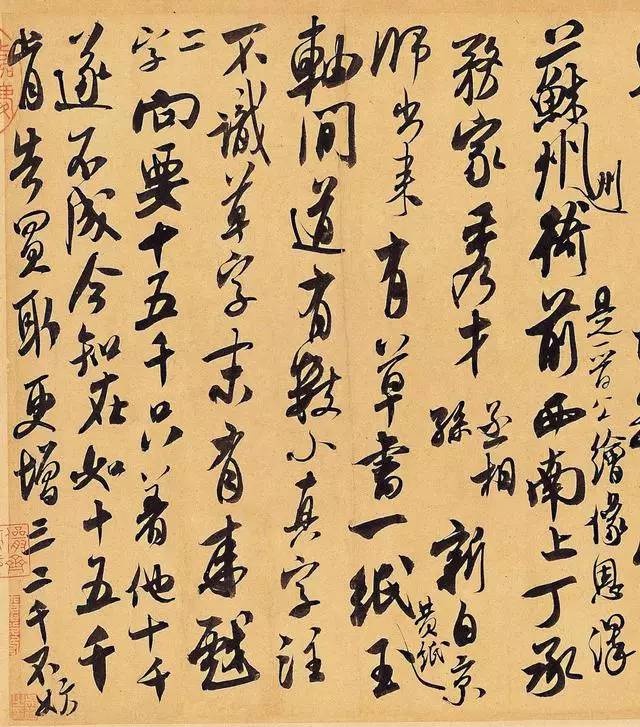 是晉公繪像恩澤
蘇州衙前西南上丁承
務家秀才丞相孫新自京
師出來有草書一紙黃紙
軸間道有數小真字注
不識草字末有來戲
二字向要十五千只著他十千
遂不成今知在如十五千
肯告買取更增三二千不妨